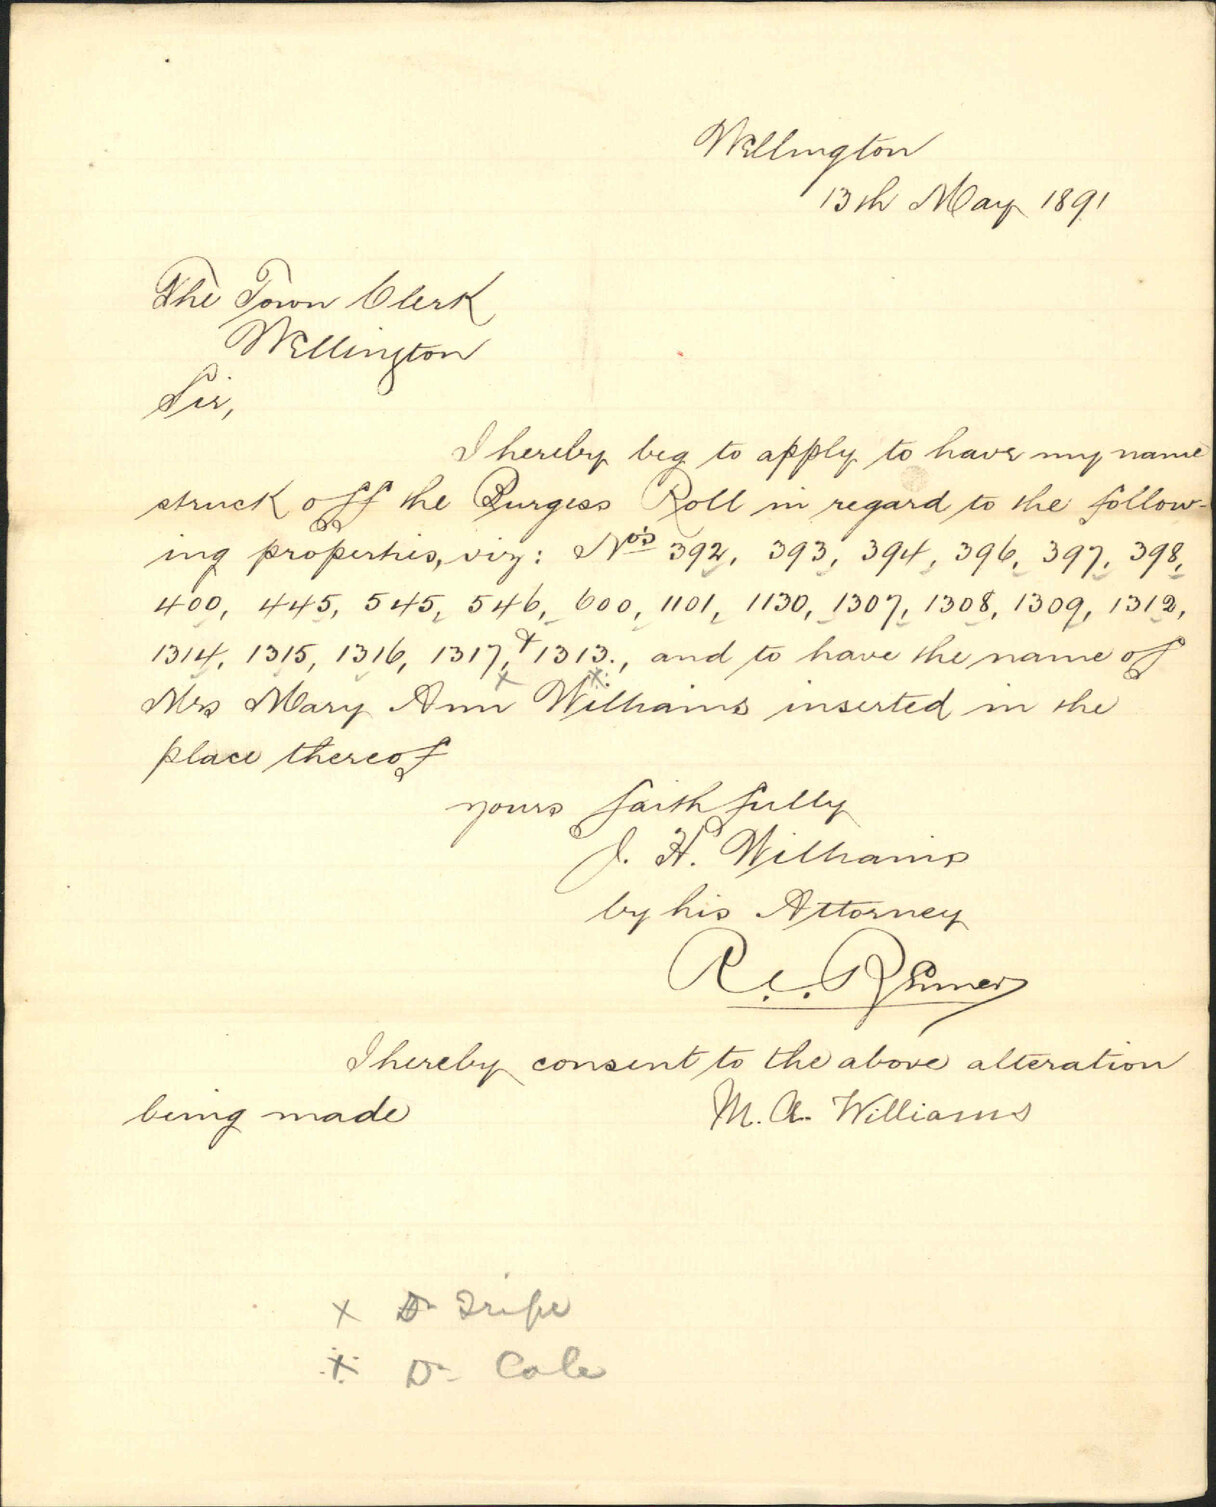 Wellington
13th May 1891
The Town Clerk
Wellington
Sir,
I hereby beg to apply to have my name
struck off the Burgess Roll in regard to the follow-
ing properties, viz: Nos 392, 393, 394, 396, 397, 398,
400, 445, 545, 546, 600, 1101, 1130, 1307, 1308, 1309, 1312,
1314, 1315, 1316, 1317, + 1313., and to have the name of
x x
Mrs Mary Ann Williams inserted in the
place thereof
yours faithfully
J. H. Williams
by his Attorney
R. C. Renner
I hereby consent to the above alteration
being made
M. A. Williams
x Dr Tripe
x Dr Cole